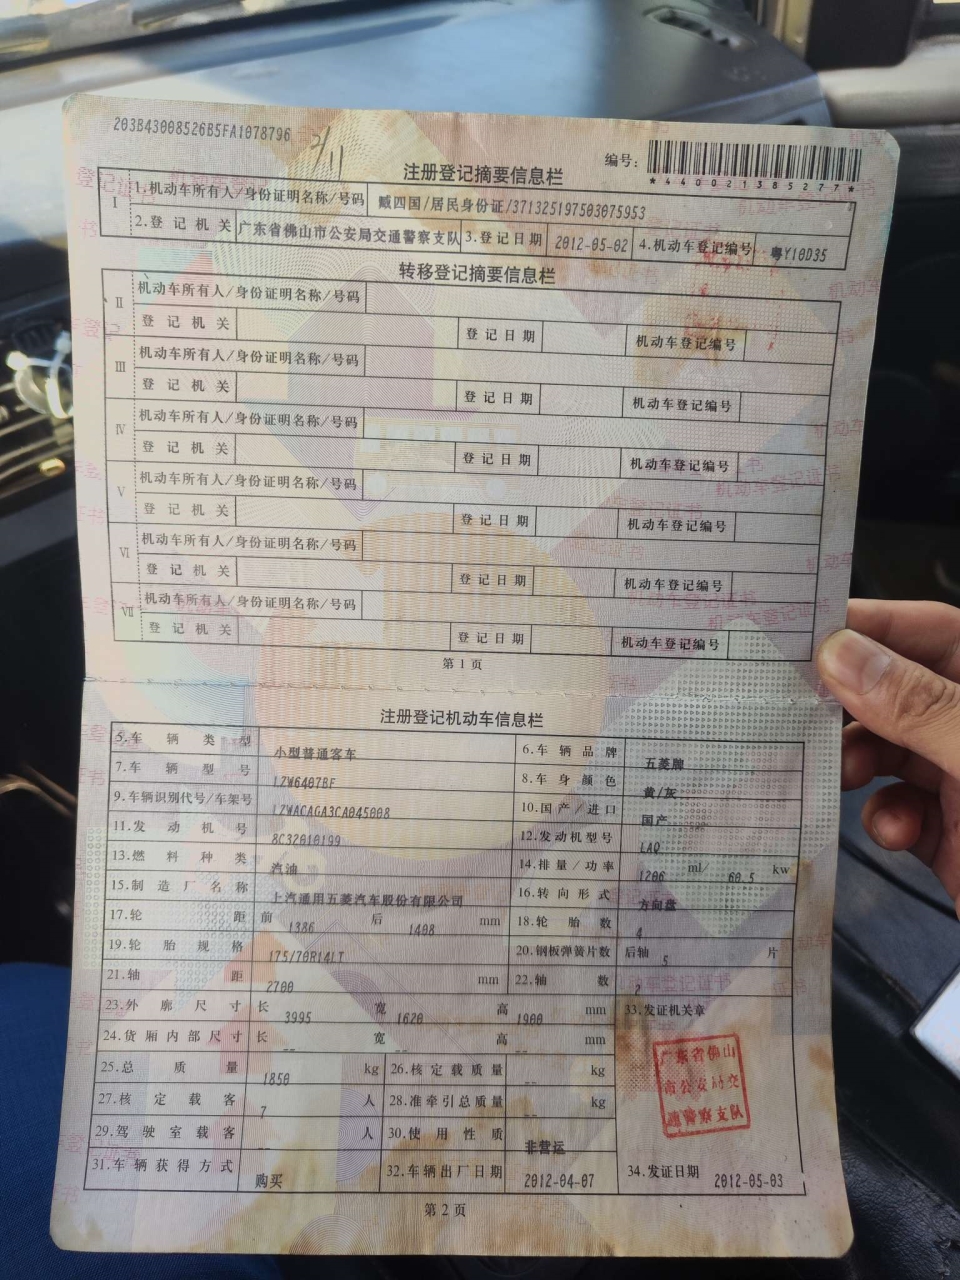 203B43008526B5FA1078796
2/11
编号：
*440021385277*
注册登记摘要信息栏
I 1.机动车所有人/身份证明名称/号码 戴四国/居民身份证/371325197503075953
2.登记机关 广东省佛山市公安局交通警察支队 3.登记日期 2012-05-02 4.机动车登记编号 粤Y10D35
转移登记摘要信息栏
II 机动车所有人/身份证明名称/号码
登记机关 登记日期 机动车登记编号
III 机动车所有人/身份证明名称/号码
登记机关 登记日期 机动车登记编号
IV 机动车所有人/身份证明名称/号码
登记机关 登记日期 机动车登记编号
V 机动车所有人/身份证明名称/号码
登记机关 登记日期 机动车登记编号
VI 机动车所有人/身份证明名称/号码
登记机关 登记日期 机动车登记编号
VII 机动车所有人/身份证明名称/号码
登记机关 登记日期 机动车登记编号
第1页
注册登记机动车信息栏
5.车辆类型 小型普通客车 6.车辆品牌 五菱牌
7.车辆型号 LZW6407BF 8.车身颜色 黄/灰
9.车辆识别代号/车架号 LZWACAGA3CA045008 10.国产/进口 国产
11.发动机号 8C32010199 12.发动机型号 LAQ
13.燃料种类 汽油 14.排量/功率 1206 ml 60.5 kw
15.制造厂名称 上汽通用五菱汽车股份有限公司 16.转向形式 方向盘
17.轮距 前 1386 后 1408 mm 18.轮胎数 4
19.轮胎规格 175/70R14LT 20.钢板弹簧片数 后轴 5 片
21.轴距 2700 mm 22.轴数 2
23.外廓尺寸 长 3995 宽 1620 高 1900 mm 33.发证机关章
24.货厢内部尺寸 长 -- 宽 -- 高 -- mm
25.总质量 1850 kg 26.核定载质量 -- kg
27.核定载客 7 人 28.准牵引总质量 -- kg
29.驾驶室载客 -- 人 30.使用性质 非营运
31.车辆获得方式 购买 32.车辆出厂日期 2012-04-07 34.发证日期 2012-05-03
广东省佛山
市公安局交
通警察支队
第2页